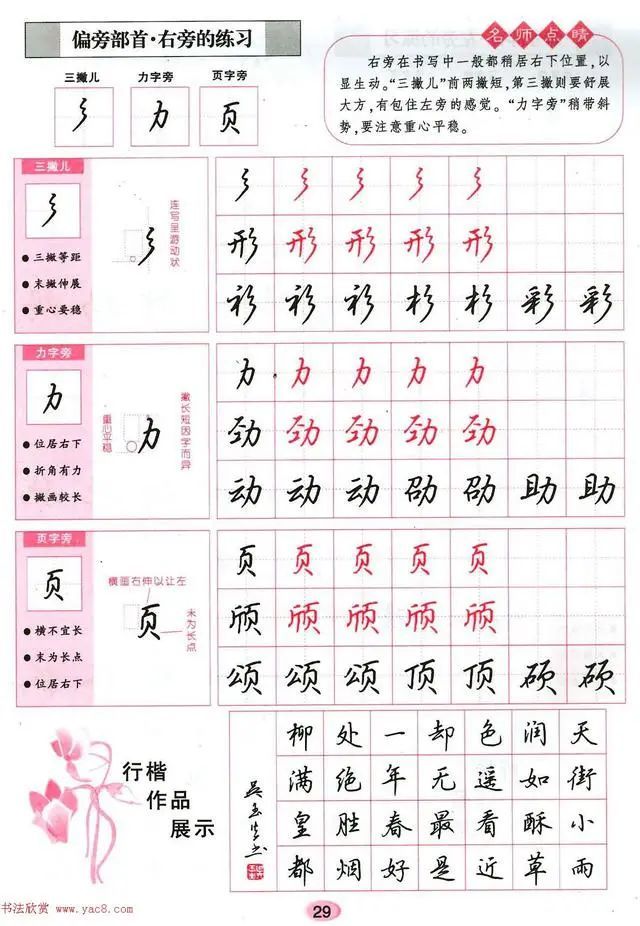 偏旁部首·右旁的练习
名师点睛
右旁在书写中一般都稍居右下位置，以
显生动。“三撇儿”前两撇短，第三撇则要舒展
大方，有包住左旁的感觉。“力字旁”稍带斜
势，要注意重心平稳。
三撇儿 力字旁 页字旁
彡 力 页
三撇儿
彡
●三撇等距
●末撇伸展
●重心要稳
彡
连写呈游动状
彡 彡 彡 彡 彡
形 形 形 形 形
衫 衫 衫 杉 杉 彩 彩
力字旁
力
●位居右下
●折角有力
●撇画较长
重心平稳
力
撇长短因字而异
力 力 力 力 力
劲 劲 劲 劲 劲
动 动 动 劭 劭 助 助
页字旁
页
●横不宜长
●末为长点
●位居右下
横画右伸以让左
页
末为长点
页 页 页 页 页
颀 颀 颀 颀 颀
颂 颂 颂 顶 顶 硕 硕
行楷
作品
展示
天街小雨
润如酥草
色遥看近
却无最是
一年春好
处绝胜烟
柳满皇都
吴玉生书
书法欣赏 www.yac8.com
29